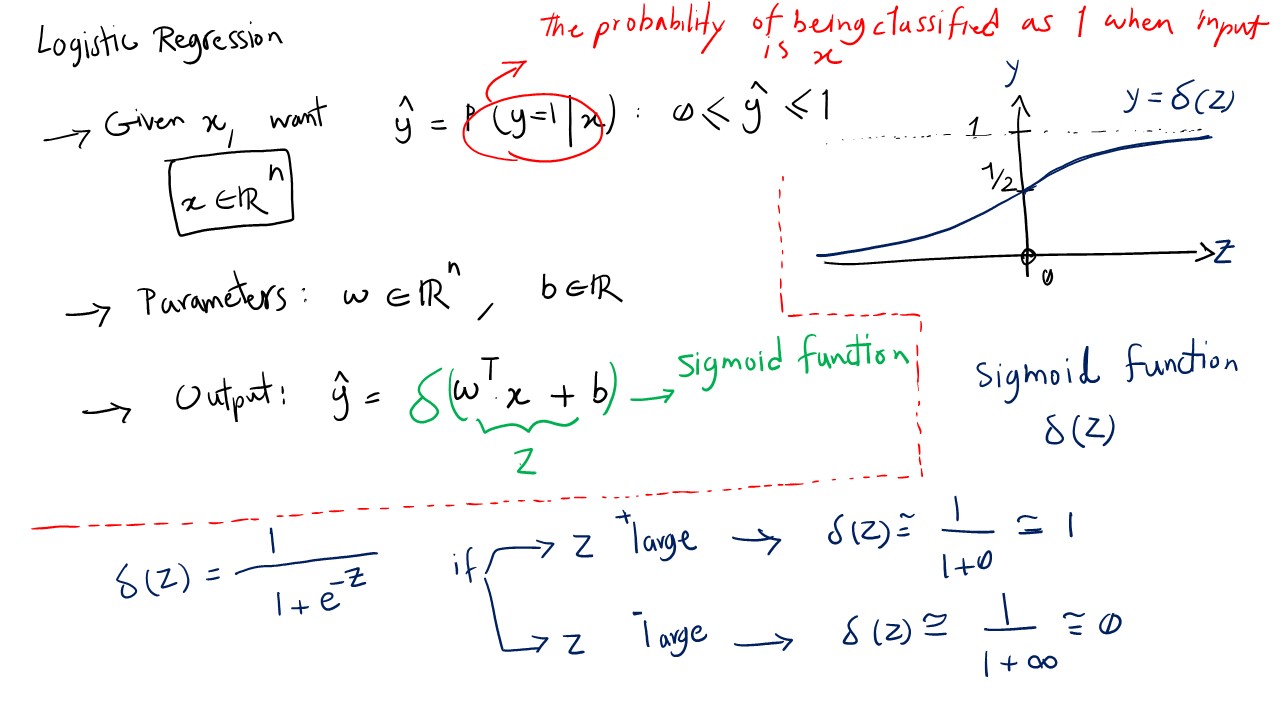 Logistic Regression
The probability of being classified as 1 when input
is x
→ Given x, want ŷ = P(y=1|x) : 0 ≤ ŷ ≤ 1
x ∈ ℝⁿ
y
y = δ(z)
1
1/2
z
0
→ Parameters: w ∈ ℝⁿ, b ∈ ℝ
→ Output: ŷ = δ(wᵀx + b) → Sigmoid function
z
Sigmoid function
δ(z)
δ(z) = 1 / (1 + e^{-z})
if → z +large → δ(z) ≅ 1/(1+0) ≅ 1
→ z -large → δ(z) ≅ 1/(1+∞) ≅ 0